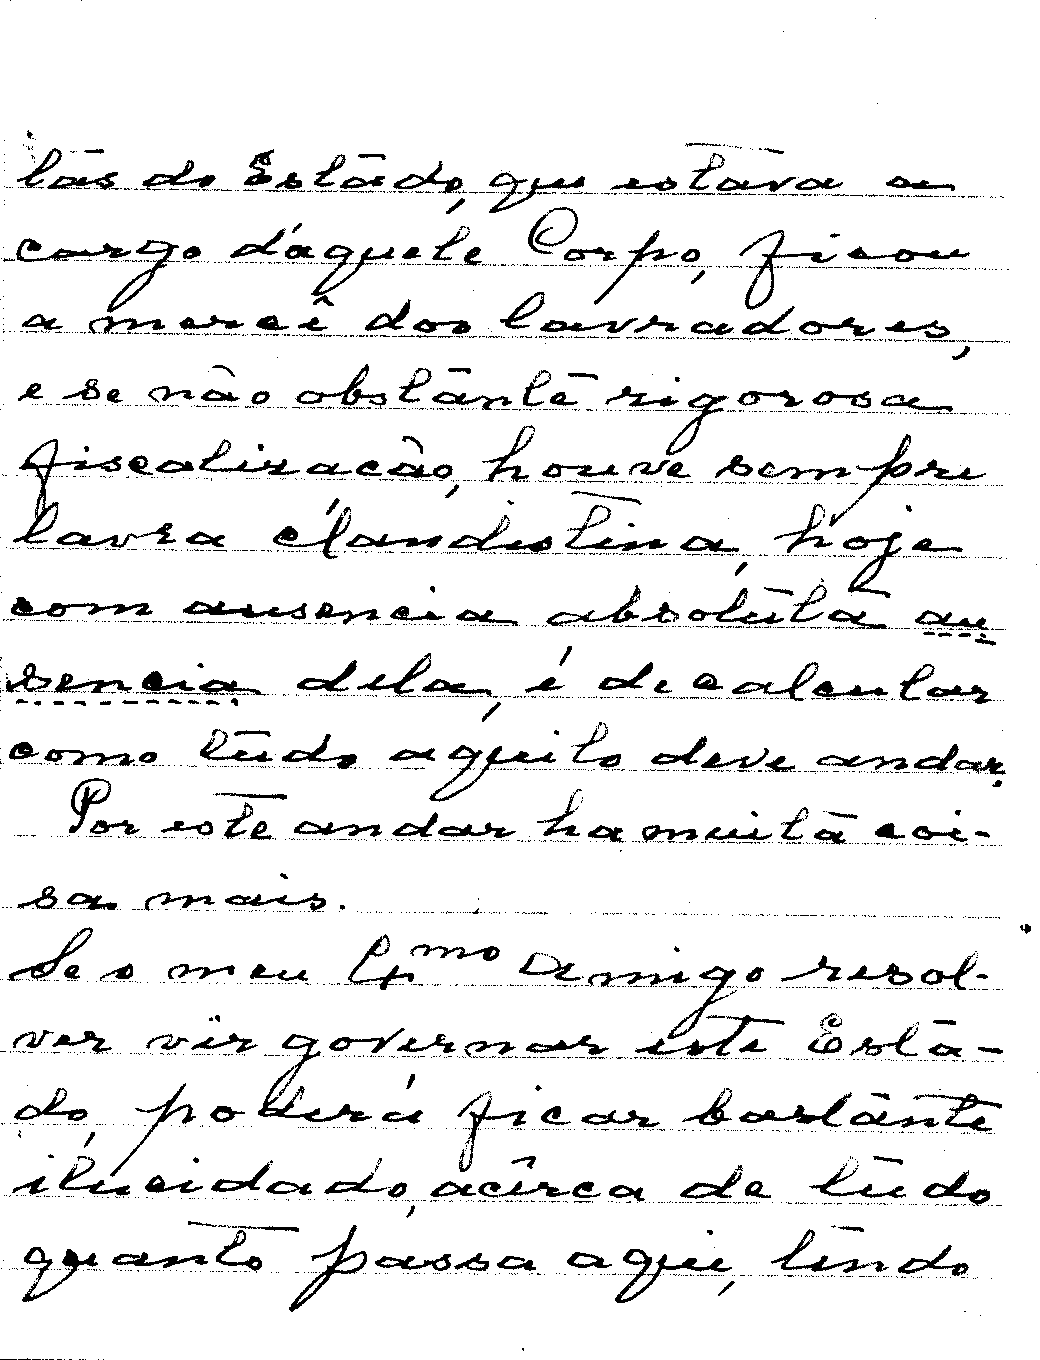 tas do Estado, que estava a
cargo d'aquele Corpo, ficou
a mercê dos lavradores,
e se não obstante rigorosa
fiscalização, houve sempre
lavra clandistina, hoje
com ausencia absoluta au
sencia dela, é de calcular
como tudo aquilo deve andar.
Por este andar ha muita coi-
sa mais.
Se o meu Exmo Amigo resol-
ver vir governar este Esta-
do, poderá ficar bastante
ilucidado, acêrca de tudo
quanto passa aqui, lendo